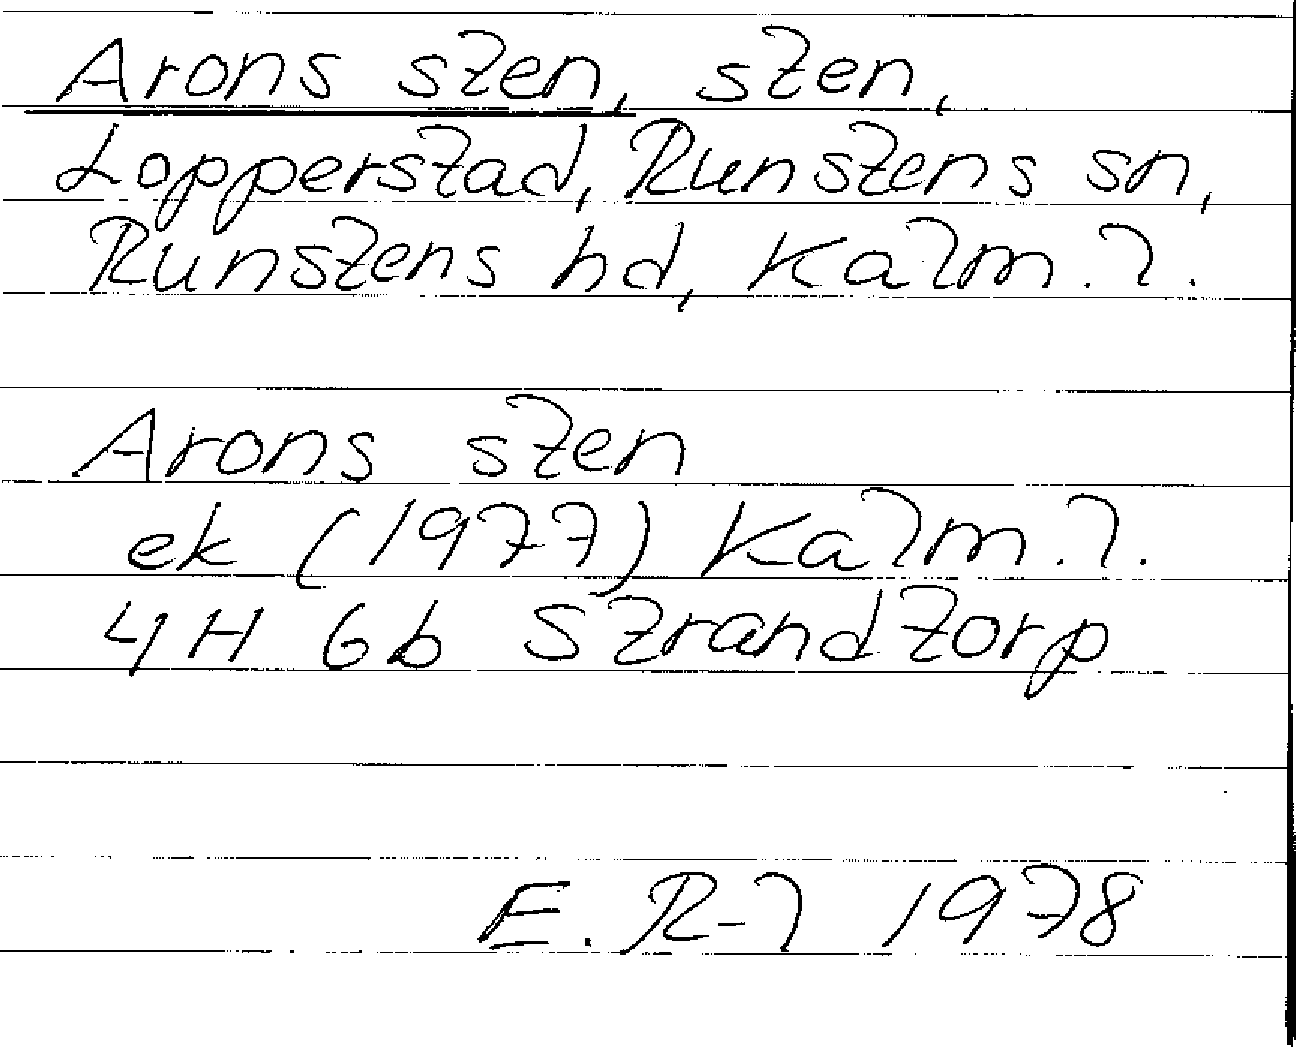 Arons sten, sten,
Lopperstad, Runstens sn,
Runstens hd, Kalm. l.
Arons sten
ek (1977) Kalm. l.
4H 6b Strandtorp
E. R-l 1978